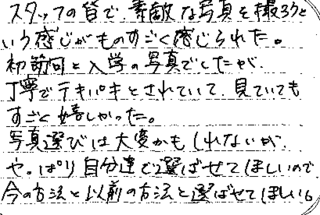 スタッフの皆で、素敵な写真を撮ろうと
いう感じがものすごく感じられた。
初節句と入学の写真でしたが、
丁寧でテキパキとされていて、見ていても
すごく嬉しかった。
写真選びは大変かもしれないが、
やっぱり自分達で選ばせてほしいので
今の方法と以前の方法と選ばせてほしい。